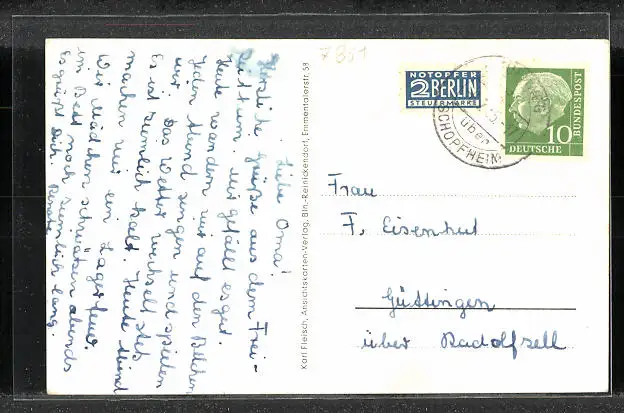 Liebe Oma!
Herzliche Grüße aus dem Frei-
mir gefällt es gut.
Heute wandern wir auf den Belchen
Jeden Abend singen und spielen
wir. Das Wetter wechselt stets
Es ist ziemlich kalt. Heute Abend
machen wir ein Lagerfeuer.
Wir Mädchen schwätzen abends
im Bett noch ziemlich lang.
Es grüßt Dich Renate
Karl Fleisch, Ansichtskarten-Verlag, Bln.-Reinickendorf, Emmentalerstr. 58
7851
NOTOPFER
2 BERLIN
STEUERMARKE
über
SCHOPFHEIM
10
DEUTSCHE
BUNDESPOST
Frau
F. Eisenhut
Güttingen
über Radolfzell